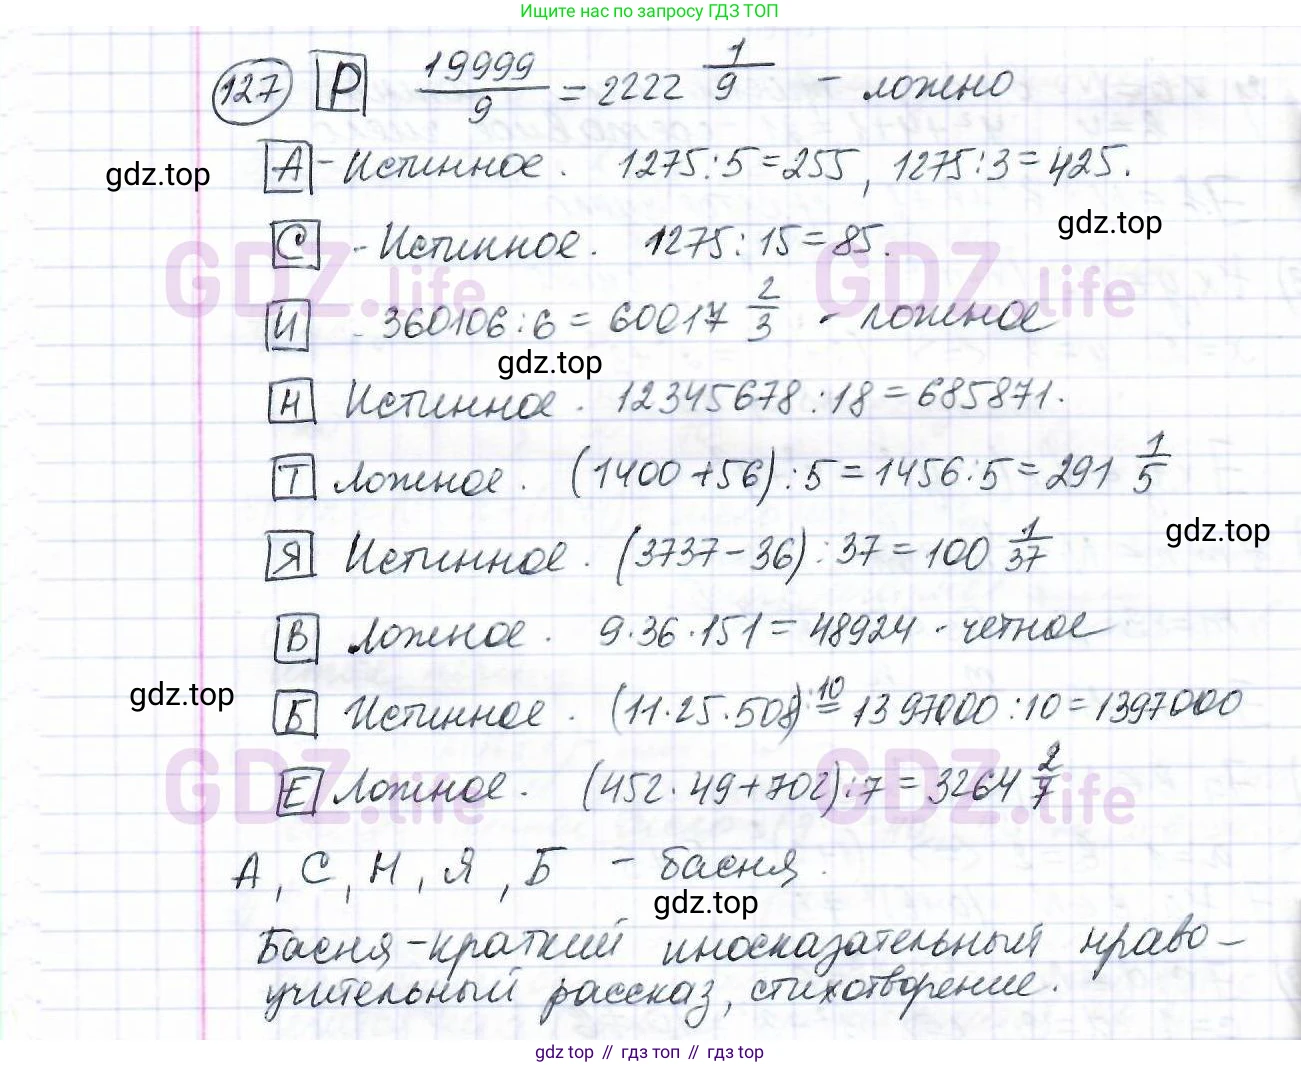 Ищите нас по запросу ГДЗ ТОП
127 Р 19999/9 = 2222 1/9 - ложно
gdz.top
А - Истинное. 1275:5=255, 1275:3=425.
gdz.top
С - Истинное. 1275:15=85.
GDZ.life GDZ.life
И - 360106:6 = 60017 2/3 - ложное
gdz.top
Н Истинное. 12345678:18=685871.
Т Ложное. (1400+56):5=1456:5=291 1/5
gdz.top
Я Истинное. (3737-36):37=100 1/37
В Ложное. 9·36·151=48924 - четное
gdz.top
Б Истинное. (11·25·508):10 = 1397000:10=1397000
GDZ.life GDZ.life
Е Ложное. (452·49+702):7=3264 2/7
А, С, Н, Я, Б - басня.
gdz.top
Басня-краткий иносказательный нраво-
учительный рассказ, стихотворение.
gdz top // гдз топ // gdz top